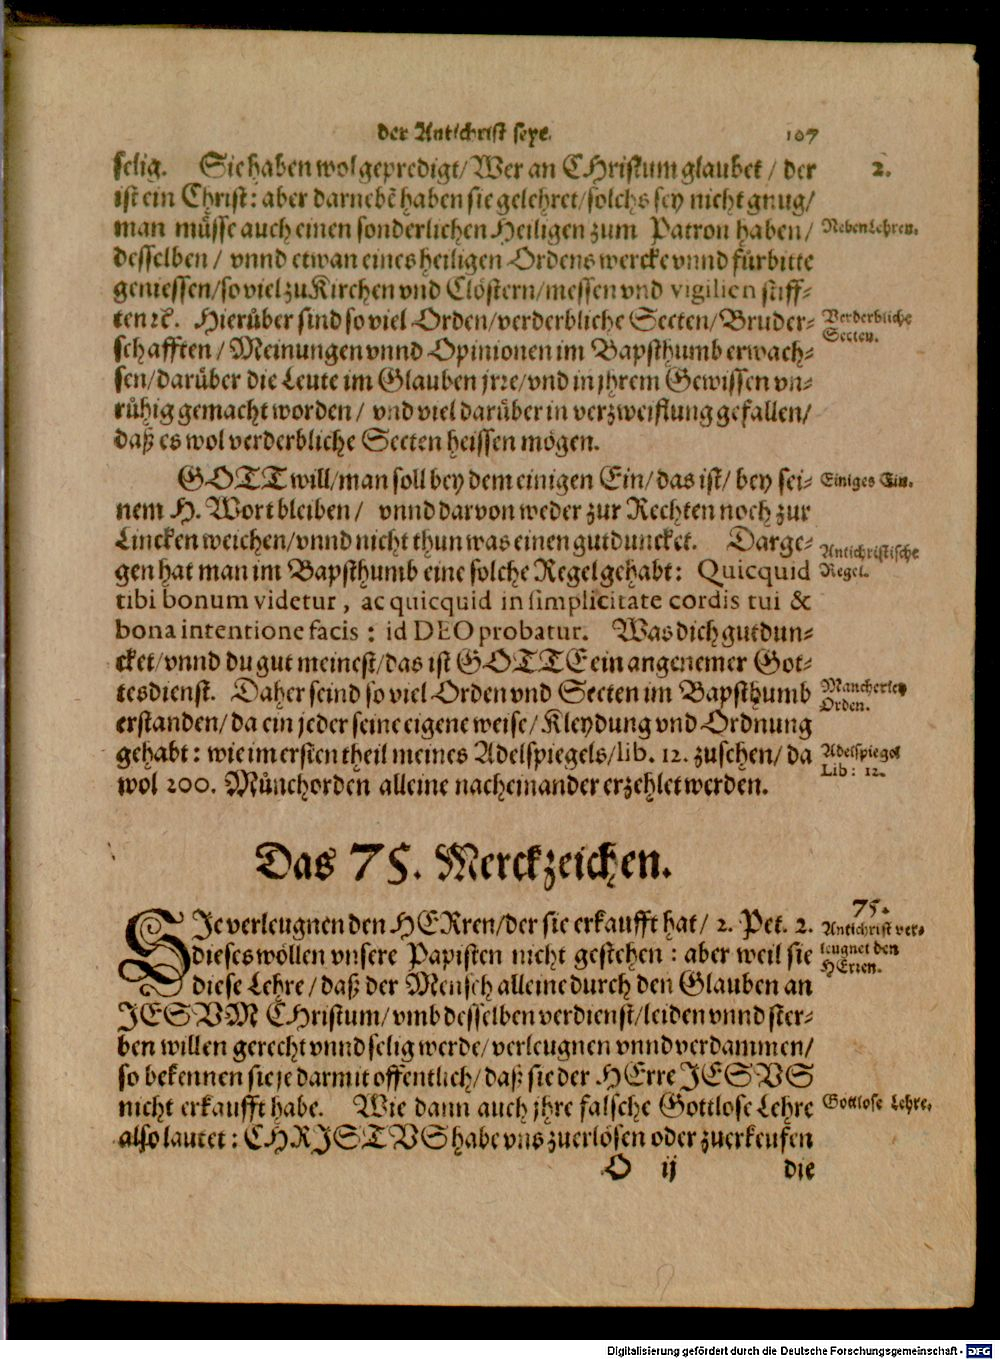 der Antichrist seye. 107
selig. Sie haben wol gepredigt/ Wer an CHristum glaubet / der
2.
ist ein Christ: aber darnebē haben sie gelehret/ solchs sey nicht gnug/
man müsse auch einen sonderlichen Heiligen zum Patron haben/
Neben Lehren.
desselben / vnnd etwan eines heiligen Ordens wercke vnnd fürbitte
geniessen/ so viel zu Kirchen vnd Clöstern/ messen vnd vigilien stiff-
ten ꝛc. Hierüber sind so viel Orden/ verderbliche Secten/ Bruder-
Verderbliche
Secten.
schafften / Meinungen vnnd Opinionen im Bapsthumb erwach-
sen/ darüber die Leute im Glauben jrre/ vnd in jhrem Gewissen vn-
rühig gemacht worden / vnd viel darüber in verzweiflung gefallen/
daß es wol verderbliche Secten heissen mögen.
GOTT will/ man soll bey dem einigen Ein/ das ist/ bey sei-
Einiges Ein.
nem H. Wort bleiben / vnnd darvon weder zur Rechten noch zur
Lincken weichen/ vnnd nicht thun was einen gut duncket. Darge-
Antichristische
Regel.
gen hat man im Bapsthumb eine solche Regel gehabt: Quicquid
tibi bonum videtur, ac quicquid in simplicitate cordis tui &
bona intentione facis : id DEO probatur. Was dich gut dun-
cket/ vnnd du gut meinest/ das ist GOTTE ein angenemer Got-
tesdienst. Daher seind so viel Orden vnd Secten im Bapsthumb
Mancherley
Orden.
erstanden/ da ein jeder seine eigene weise/ Kleydung vnd Ordnung
gehabt: wie im ersten theil meines Adelspiegels/ lib. 12. zusehen/ da
Adelspiegel
Lib: 12.
wol 200. Münchorden alleine nacheinander erzehlet werden.
Das 75. Merckzeichen.
SJe verleugnen den HERren/ der sie erkaufft hat/ 2. Pet. 2.
75.
Antichrist ver-
leugnet den
HErren.
dieses wöllen vnsere Papisten nicht gestehen : aber weil sie
diese Lehre / daß der Mensch alleine durch den Glauben an
JESVM CHristum/ vmb desselben verdienst/ leiden vnnd ster-
ben willen gerecht vnnd selig werde/ verleugnen vnnd verdammen/
so bekennen sie je darmit offentlich/ daß sie der HErre JESVS
nicht erkaufft habe. Wie dann auch jhre falsche Gottlose Lehre
Gottlose Lehre.
also lautet : CHRJSTVS habe vns zuerlösen oder zuerkeufen
O ij die
Digitalisierung gefördert durch die Deutsche Forschungsgemeinschaft - DFG